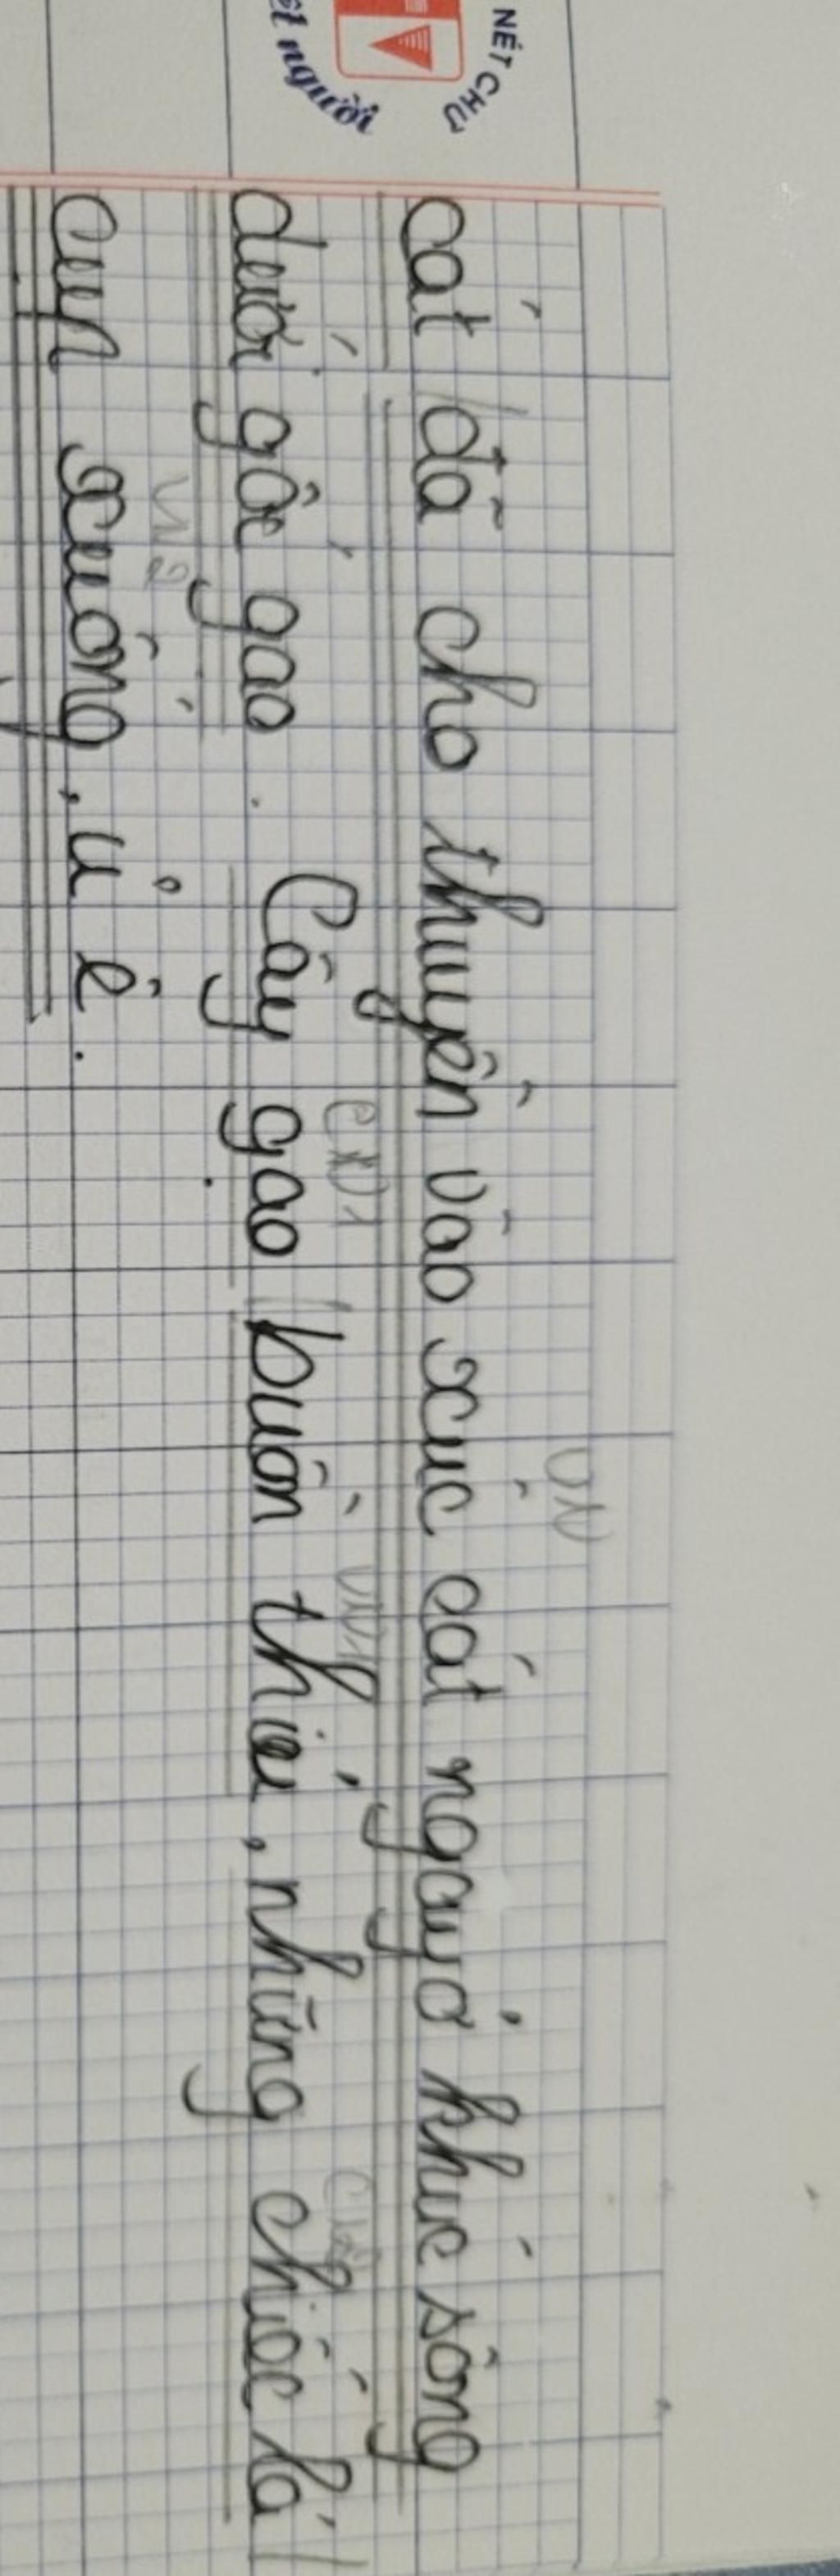 NÉT CHỮ
ết người
cát / đã cho thuyền vào xúc cát ngay ở khúc sông
VN
dưới gốc gạo. Cây gạo / buồn thiu, những chiếc lá /
CN1 VN1 CN2
cụp xuống, ủ ê.
VN2